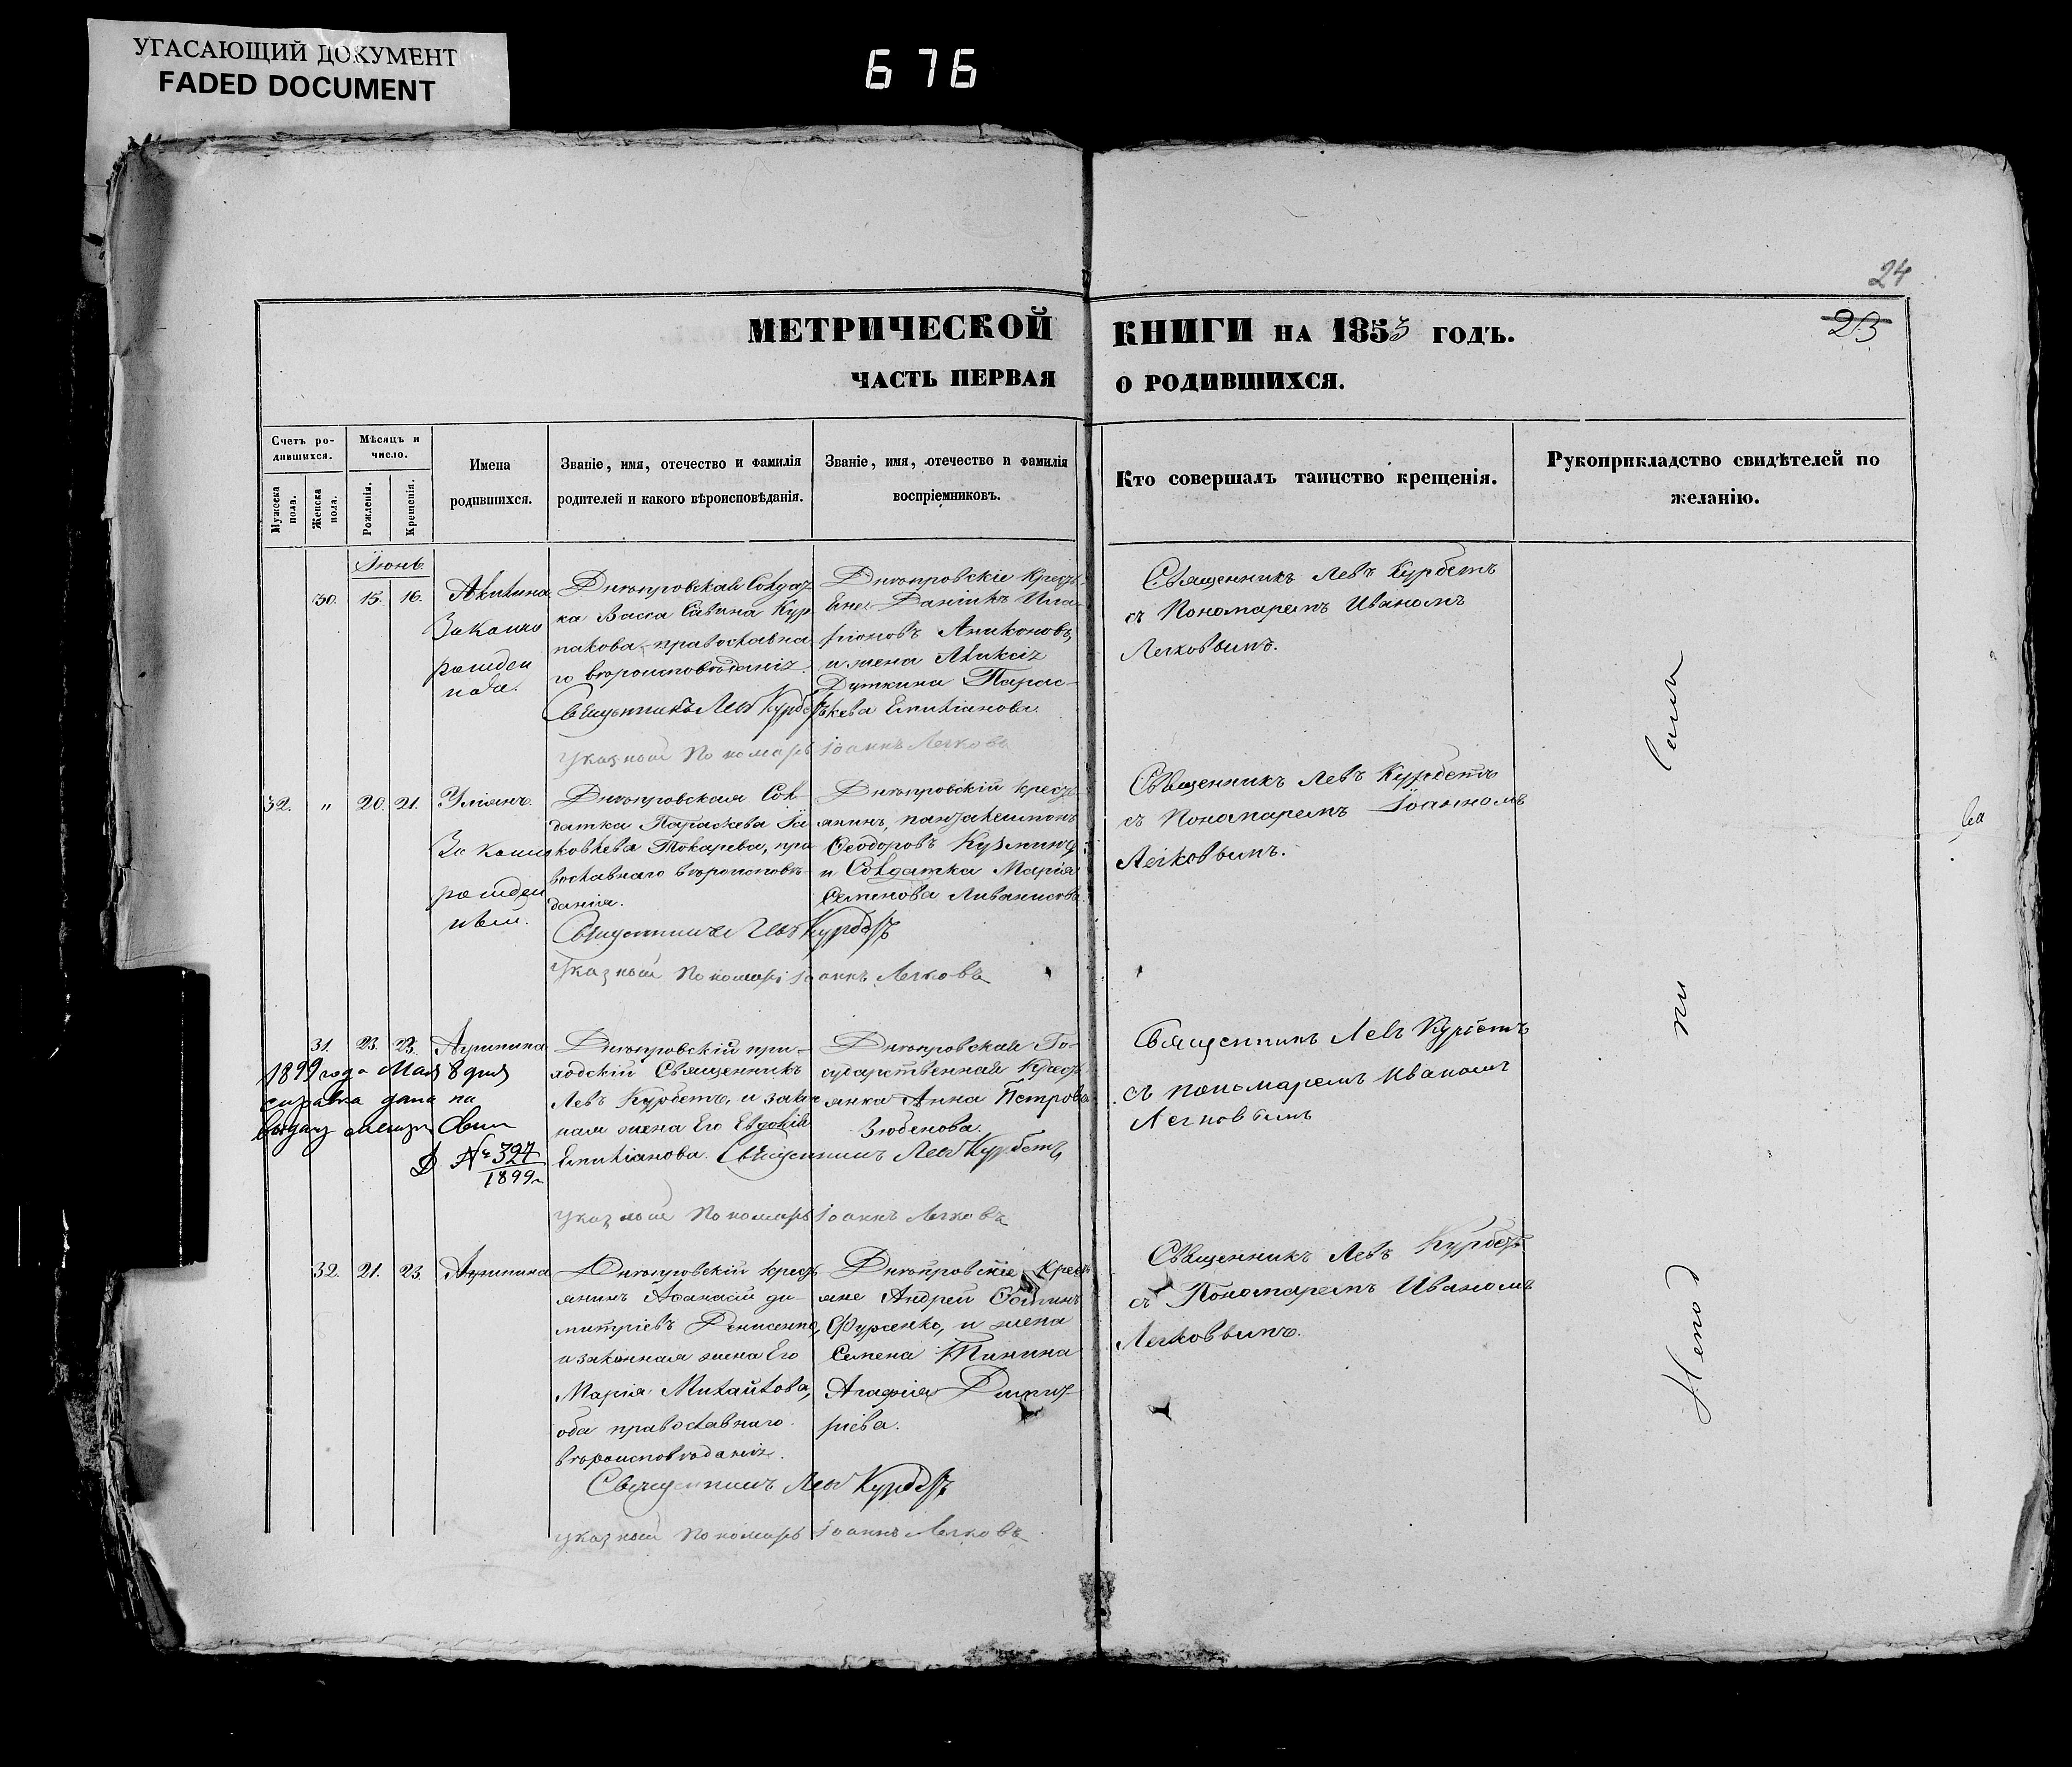 УГАСАЮЩИЙ ДОКУМЕНТ
FADED DOCUMENT
676
24
23
МЕТРИЧЕСКОЙ КНИГИ НА 1853 ГОДЪ.
ЧАСТЬ ПЕРВАЯ О РОДИВШИХСЯ.
Счетъ родившихся.
Мужеска пола.
Женска пола.
Мѣсяцъ и число.
Рожденія.
Крещенія.
Имена
родившихся.
Званіе, имя, отечество и фамилія
родителей и какого вѣроисповѣданія.
Званіе, имя, отечество и фамилія
воспріемниковъ.
Кто совершалъ таинство крещенія.
Рукоприкладство свидѣтелей по
желанію.
Іюнь.
30. 15. 16.
Акилина
рожден
Днѣпровская Солдат
ка Васса Савина Кур
пакова, православна
го вѣроисповѣданія.
Священникъ Левъ Курбетъ
Указный Пономарь Іоаннъ Легковъ
Днѣпровскіе Крестья
и жена Алексія
Дуткина Парас
кева Емиліанова.
Священникъ Левъ Курбетъ
съ Пономаремъ Иваномъ
Легковымъ.
32. " 20. 21.
Уліянъ.
рожден
Днѣпровская Сол
датка Параскева Іа
ковлева Токарева, пра
вославнаго вѣроисповѣ
данія.
Священникъ Левъ Курбетъ
Указный Пономарь Іоаннъ Легковъ
Днѣпровскій крестья
янинъ, Пантелеимонъ
Ѳеодоровъ Кузминъ
и Солдатка Марія
Семенова
Священникъ Левъ Курбетъ
съ Пономаремъ Іоанномъ
Легковымъ.
31. 23. 23.
Агрипина
1899 года Мая 8 дня
справка дана на
выдачу метрич. Свид
№ 327
1899 г.
Днѣпровскій при-
ходскій Священникъ
Левъ Курбетъ, и закон
ная жена Его Евдокія
Емиліанова. Священникъ Левъ Курбетъ
Указный Пономарь Іоаннъ Легковъ
Днѣпровская Го-
сударственная Крест
янка Анна Петрова
Зюбенова.
Священникъ Левъ Курбетъ
съ пономаремъ Иваномъ
Легковымъ
32. 21. 23.
Агрипина
Днѣпровскій крест
янинъ Аѳанасій Ди-
митріевъ Денисенко,
и законная жена Его
Марія Михайлова,
оба православнаго
вѣроисповѣданія.
Священникъ Левъ Курбетъ
Указный Пономарь Іоаннъ Легковъ
Днѣпровскіе Крест
яне Андрей
Фурсенко, и жена
Семена
Агафія Димит-
ріева.
Священникъ Левъ Курбетъ
съ Пономаремъ Иваномъ
Легковымъ.